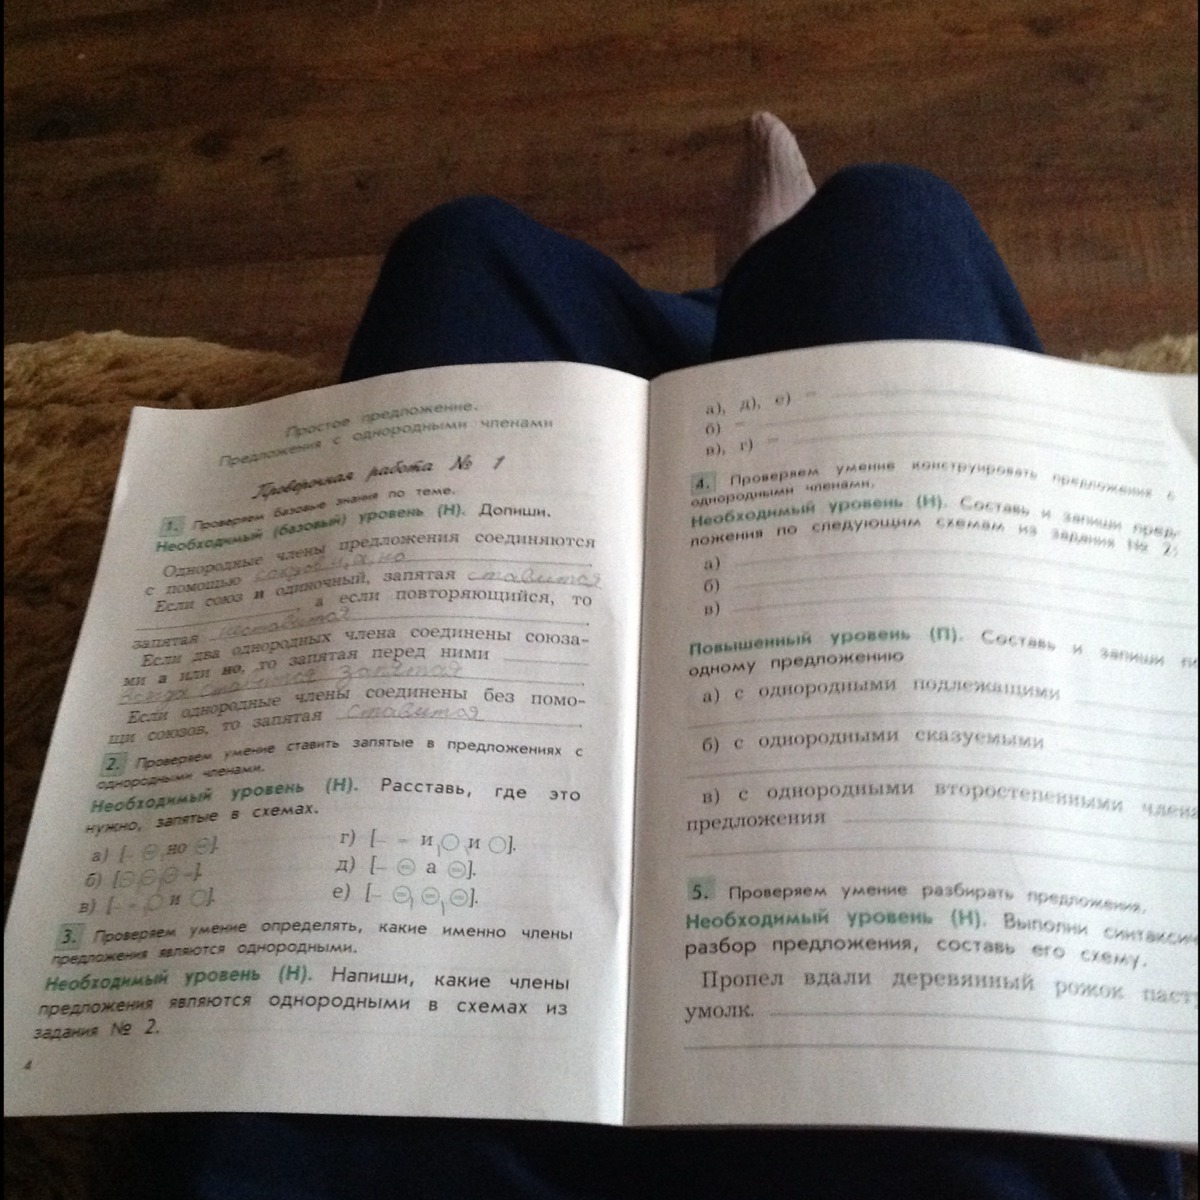 Простое предложение.
Предложения с однородными членами
Проверочная работа № 1
1. Проверяем базовые знания по теме.
Необходимый (базовый) уровень (Н). Допиши.
Однородные члены предложения соединяются
с помощью союзов и, а, но
Если союз и одиночный, запятая ставится
, а если повторяющийся, то
запятая не ставится.
Если два однородных члена соединены союза-
ми а или но, то запятая перед ними
всегда ставится запятая.
Если однородные члены соединены без помо-
щи союзов, то запятая ставится.
2. Проверяем умение ставить запятые в предложениях с
однородными членами.
Необходимый уровень (Н). Расставь, где это
нужно, запятые в схемах.
а) [– ⊖, но ⊖].
б) [⊖ ⊖ ⊖ –].
в) [– – , ○ и ○].
г) [– – и, ○, и ○].
д) [– ⊖ а ⊖].
е) [– ⊖, ⊖, ⊖].
3. Проверяем умение определять, какие именно члены
предложения являются однородными.
Необходимый уровень (Н). Напиши, какие члены
предложения являются однородными в схемах из
задания № 2.
4
а), д), е) –
б) –
в), г) –
4. Проверяем умение конструировать предложения с
однородными членами.
Необходимый уровень (Н). Составь и запиши пред-
ложения по следующим схемам из задания № 2:
а)
б)
в)
Повышенный уровень (П). Составь и запиши
одному предложению
а) с однородными подлежащими
б) с однородными сказуемыми
в) с однородными второстепенными
предложения
5. Проверяем умение разбирать предложения.
Необходимый уровень (Н). Выполни
разбор предложения, составь его схему.
Пропел вдали деревянный рожок
умолк.